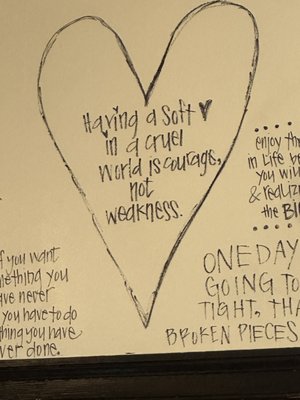 Having a soft ♥
in a cruel
world is courage,
not
weakness.
enjoy th
in Life b
you will
& realiz
the BI
f you want
mething you
ave never
you have to do
thing you have
ver done.
ONEDAY
GOING TO
TIGHT, THA
BROKEN PIECES